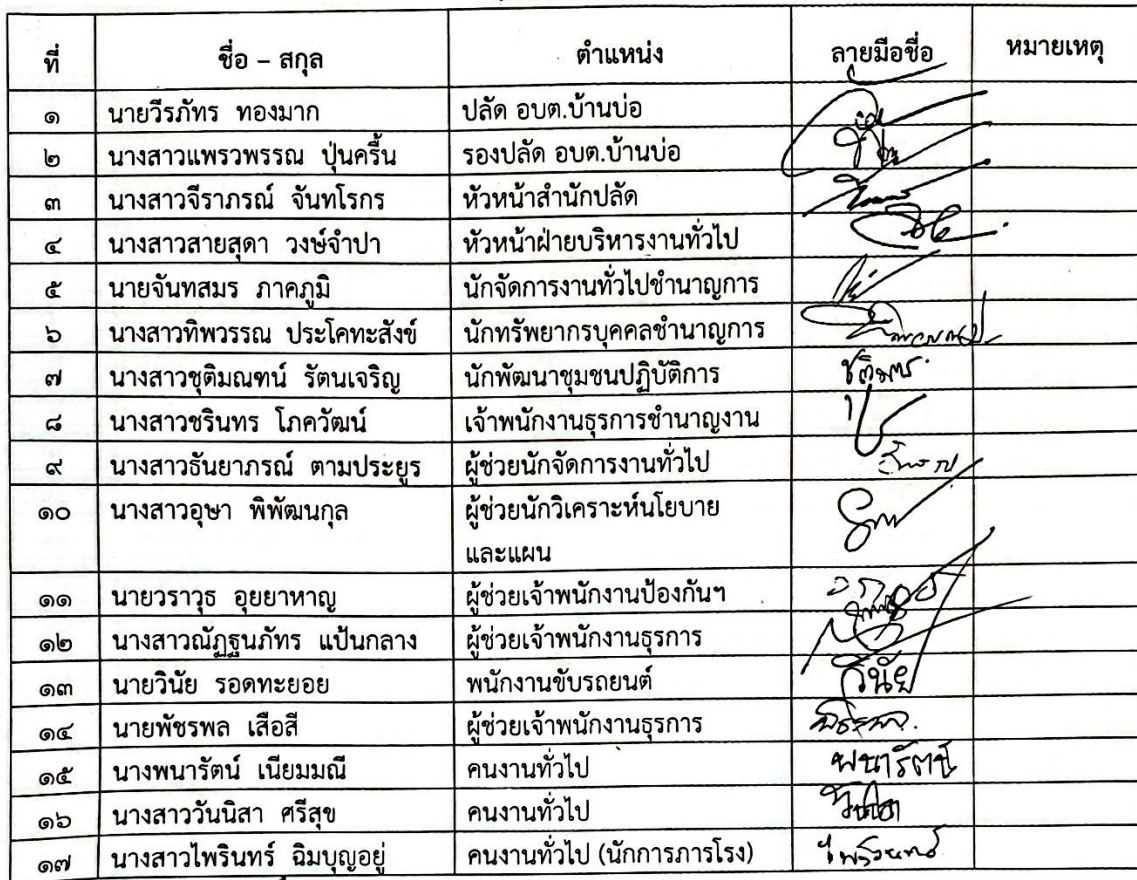 ที่ ชื่อ – สกุล ตำแหน่ง ลายมือชื่อ หมายเหตุ
๑ นายวีรภัทร ทองมาก ปลัด อบต.บ้านบ่อ
๒ นางสาวแพรวพรรณ ปุ่นครื้น รองปลัด อบต.บ้านบ่อ
๓ นางสาวจีราภรณ์ จันทโรกร หัวหน้าสำนักปลัด
๔ นางสาวสายสุดา วงษ์จำปา หัวหน้าฝ่ายบริหารงานทั่วไป
๕ นายจันทสมร ภาคภูมิ นักจัดการงานทั่วไปชำนาญการ
๖ นางสาวทิพวรรณ ประโคทะสังข์ นักทรัพยากรบุคคลชำนาญการ
๗ นางสาวชุติมณฑน์ รัตนเจริญ นักพัฒนาชุมชนปฏิบัติการ
๘ นางสาวชรินทร โภควัฒน์ เจ้าพนักงานธุรการชำนาญงาน
๙ นางสาวธันยาภรณ์ ตามประยูร ผู้ช่วยนักจัดการงานทั่วไป
๑๐ นางสาวอุษา พิพัฒนกุล ผู้ช่วยนักวิเคราะห์นโยบาย
และแผน
๑๑ นายวราวุธ อุยยาหาญ ผู้ช่วยเจ้าพนักงานป้องกันฯ
๑๒ นางสาวณัฏฐนภัทร แป้นกลาง ผู้ช่วยเจ้าพนักงานธุรการ
๑๓ นายวินัย รอดทะยอย พนักงานขับรถยนต์ วินัย
๑๔ นายพัชรพล เสือสี ผู้ช่วยเจ้าพนักงานธุรการ
๑๕ นางพนารัตน์ เนียมมณี คนงานทั่วไป พนารัตน์
๑๖ นางสาววันนิสา ศรีสุข คนงานทั่วไป
๑๗ นางสาวไพรินทร์ ฉิมบุญอยู่ คนงานทั่วไป (นักการภารโรง)